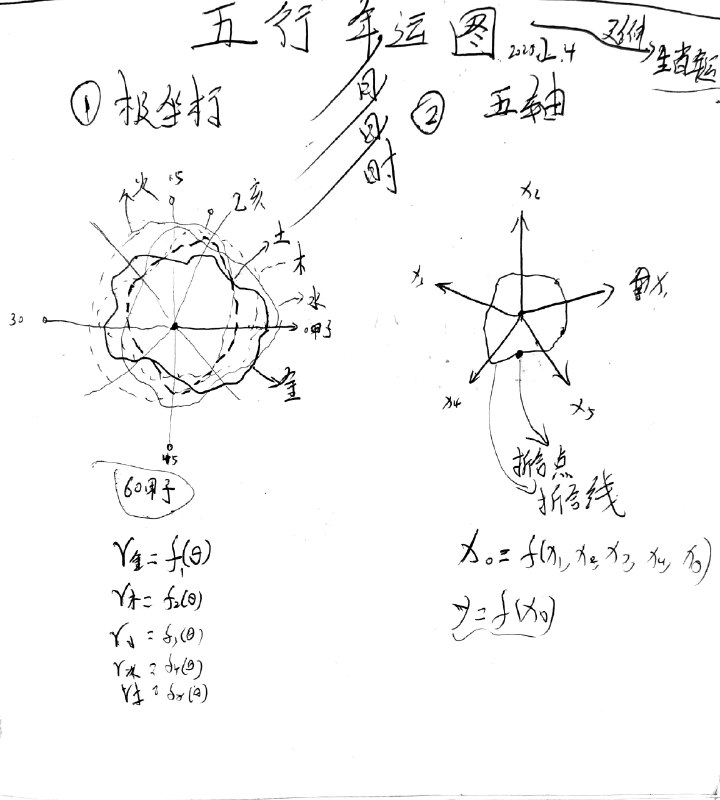 五行年运图
2020.2.4
生肖运
月
日
时
① 极坐标
② 五轴
火
15
乙亥
土
木
水
30
0甲子
金
45
60甲子
x₂
x₃
x₁
x₄
x₅
折合点
折合线
r金=f₁(θ)
r木=f₂(θ)
r水=f₃(θ)
r火=f₄(θ)
r土=f₅(θ)
x₀=f(x₁, x₂, x₃, x₄, x₅)
y=f(x₀)